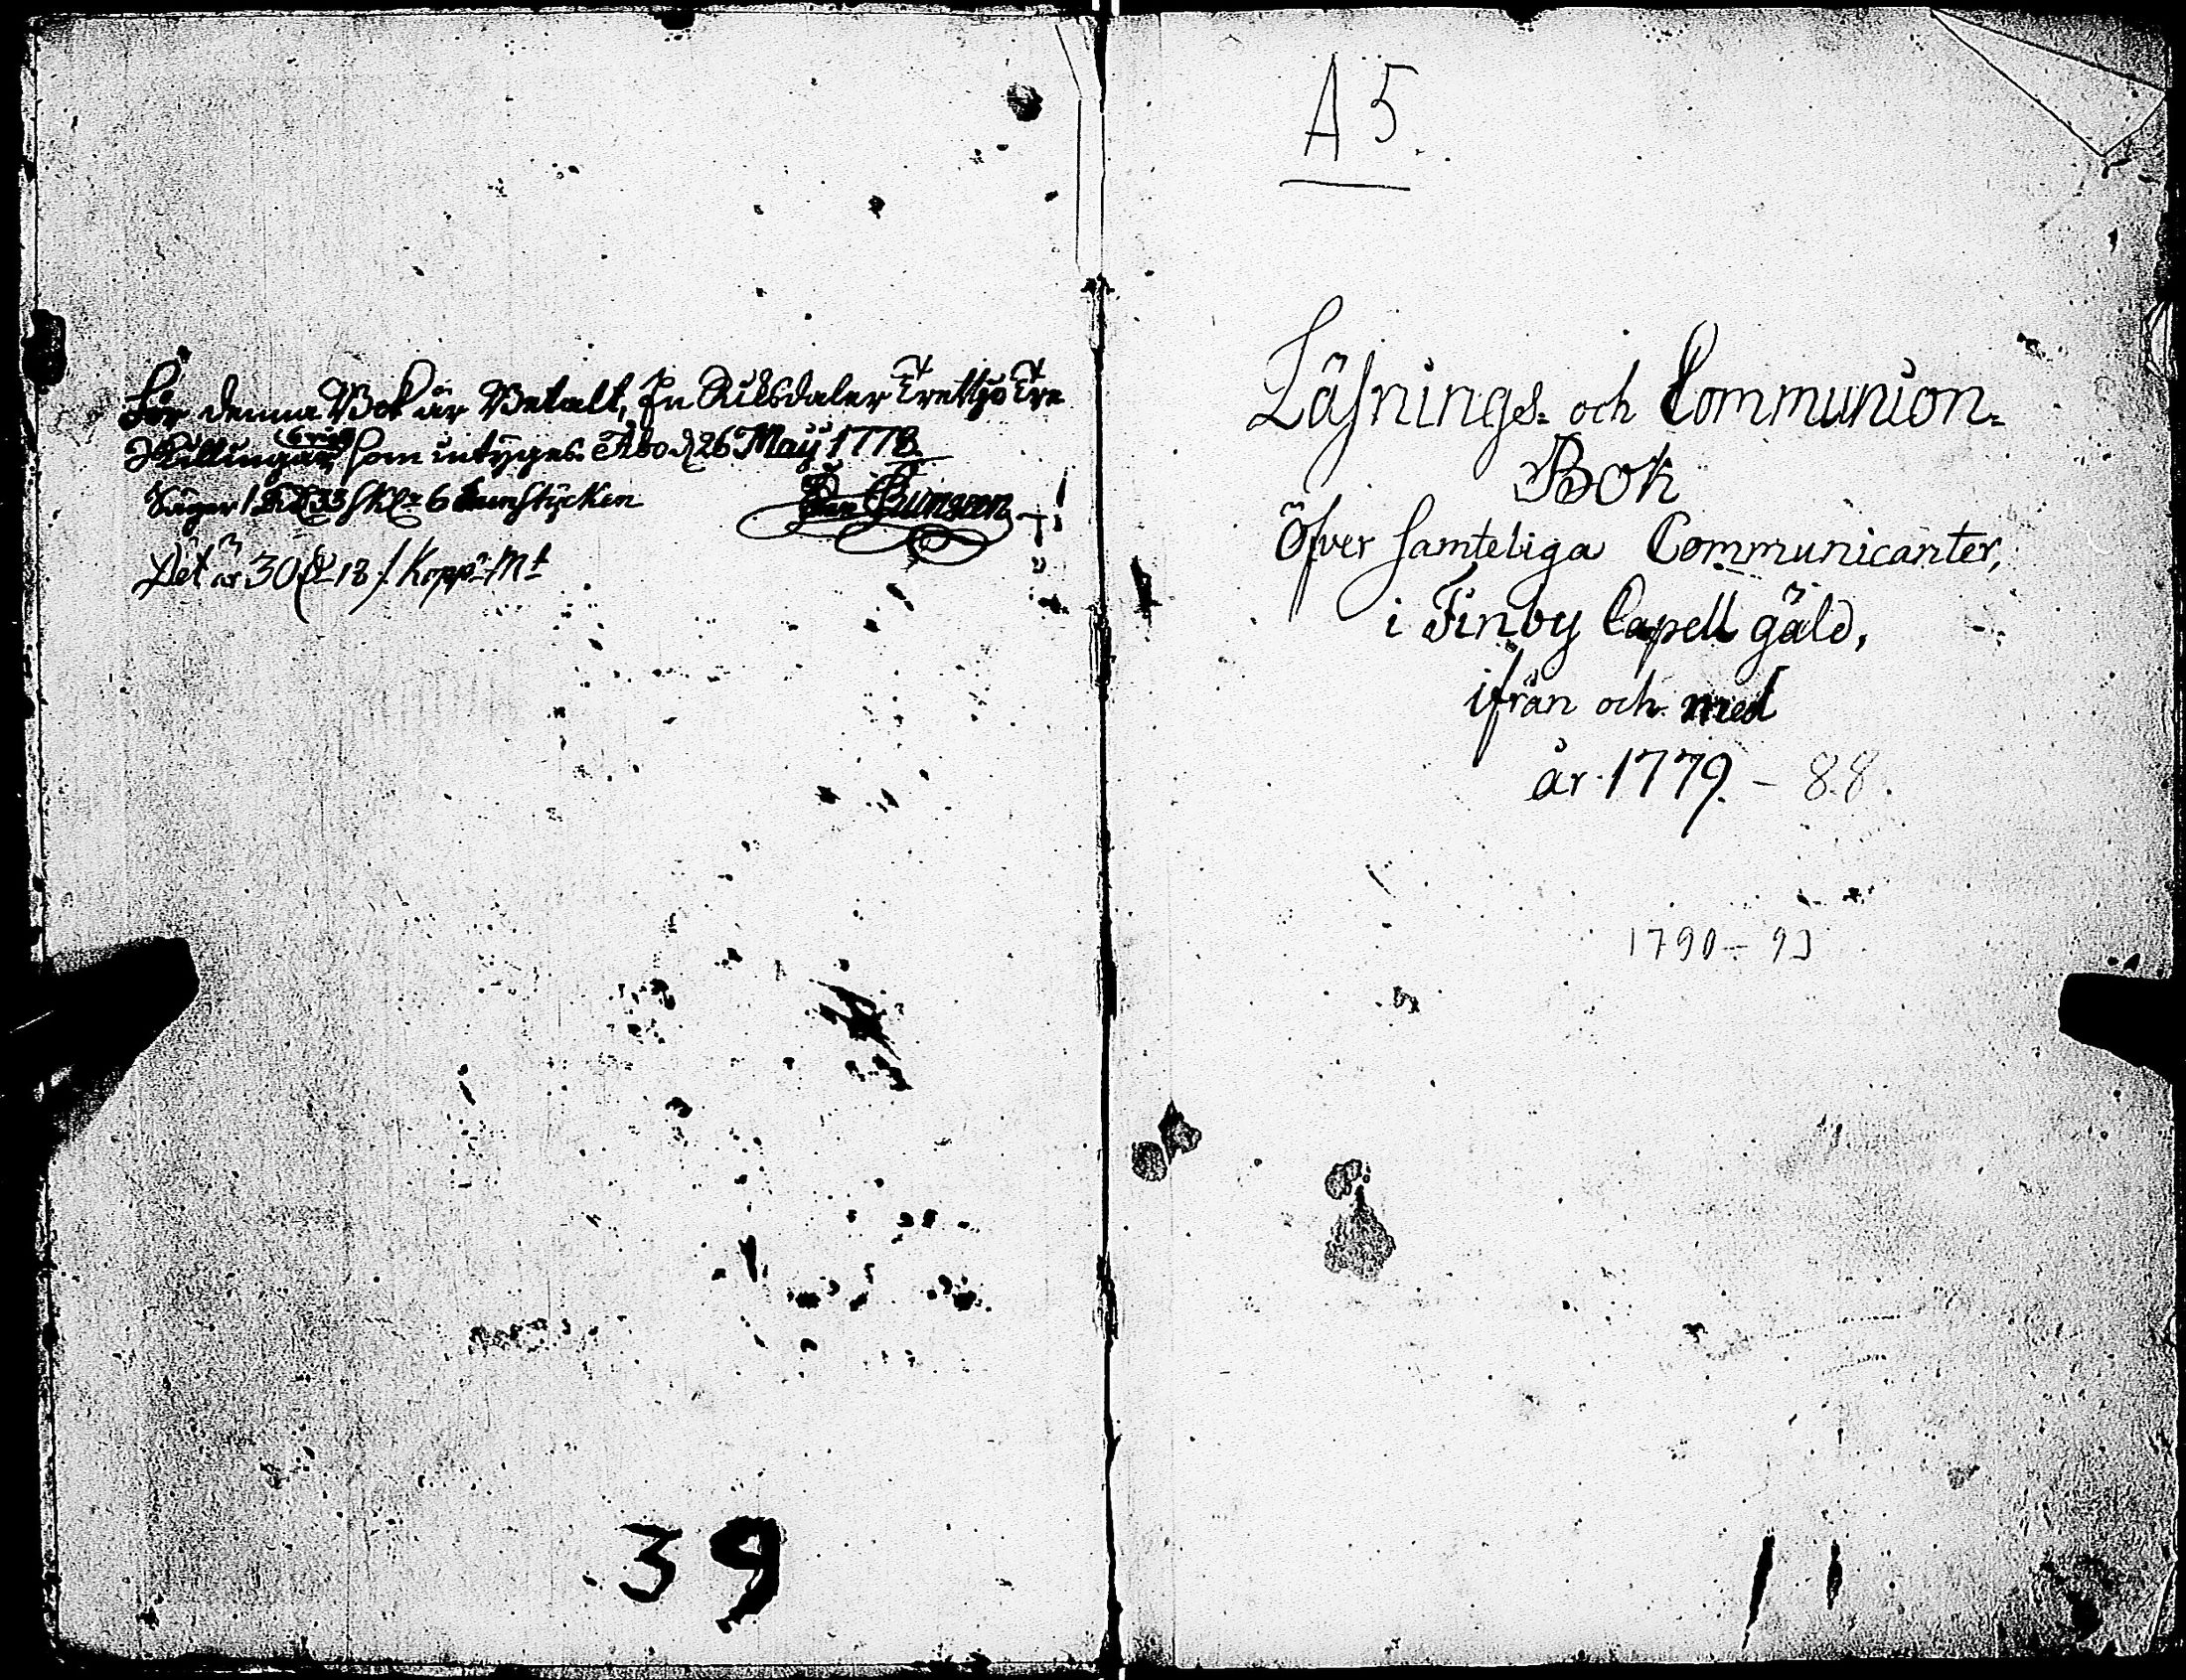 För denna Bok är Betalt, En Riksdaler Trettjo Tre
Skillingar, 6 rst som intÿges. Åbo d 26 Maÿ 1778.
Säger 1 Rd 33 sk 6 runstÿcken
Det är 30 18 Kopp Mt
39
A 5.
Läsnings- och Communion-
Bok
Öfver samteliga Communicanter,
i Finby Capell gäld,
ifrån och med
år 1779. - 88.
1790 - 93